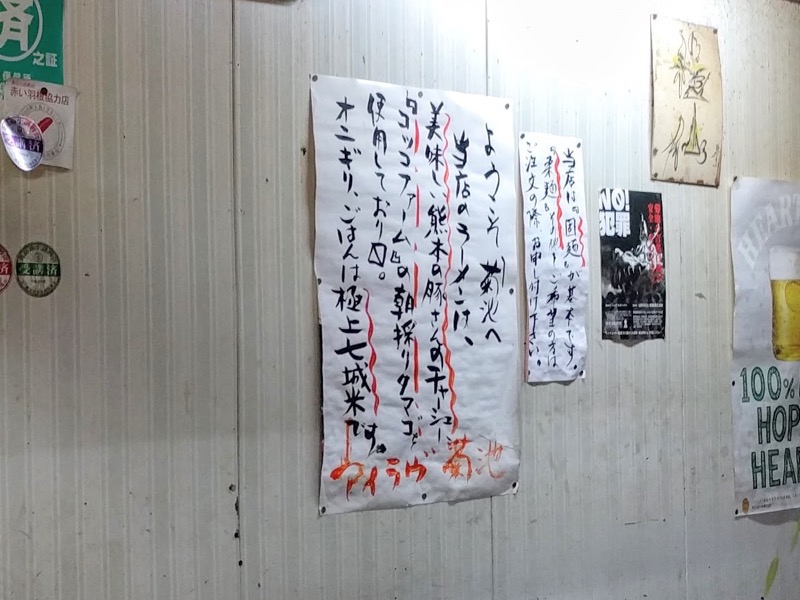 済
之証
赤い羽根協力店
受講済
ようこそ 菊池へ
当店のラーメンは、
美味しい熊本の豚さんのチャーシュー
タコッコファームの朝採りタマゴを
使用しており〼。
オニギリ、ごはんは極上七城米です。
アイラヴ 菊池
当店は"固麺"が基本です
ご希望の方は
ご注文の際、お申し付け下さい。
NO!
犯罪
HEART
100%
HOP
HEA